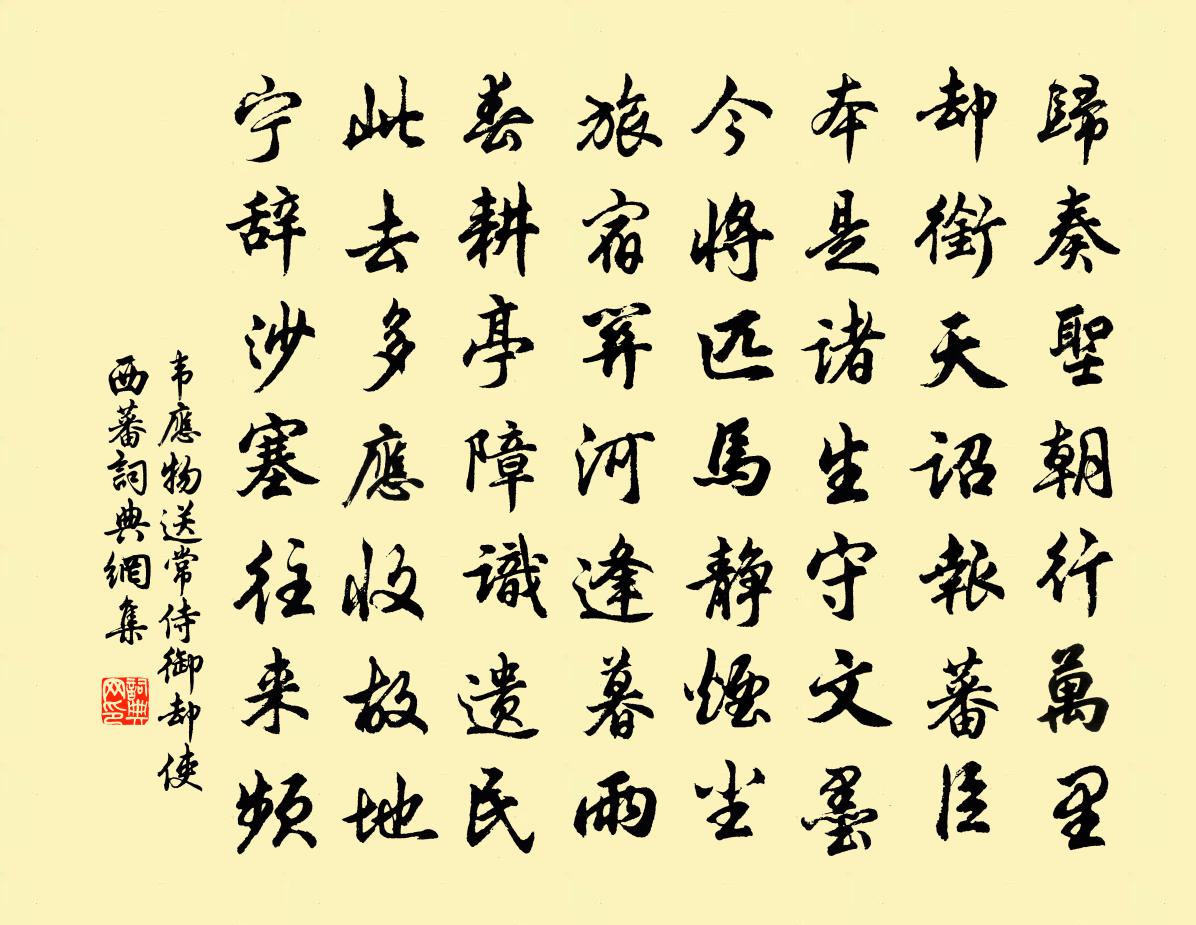 歸奏聖朝行萬里
却銜天詔報蕃臣
本是諸生守文墨
今將匹馬静煙尘
旅宿関河逢暮雨
春耕亭障識遺民
此去多應收故地
宁辞沙塞往来頻
韦應物送常侍御却使
西蕃詞典網集
詞典网印